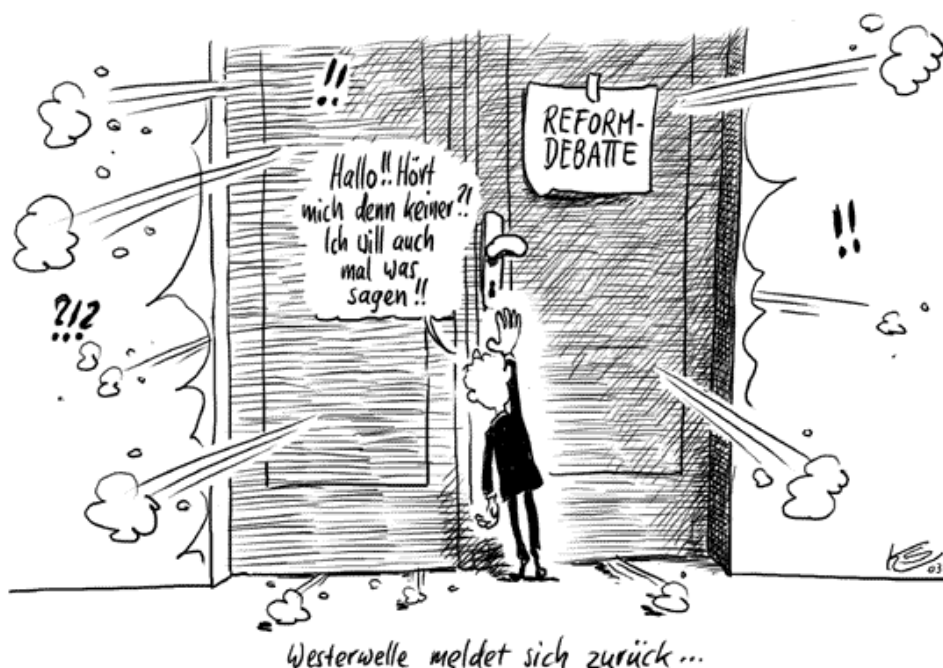 !!
REFORM-
DEBATTE
Hallo!! Hört
mich denn keiner?!
Ich will auch
mal was
sagen!!
!!
?!?
KS
03
Westerwelle meldet sich zurück...